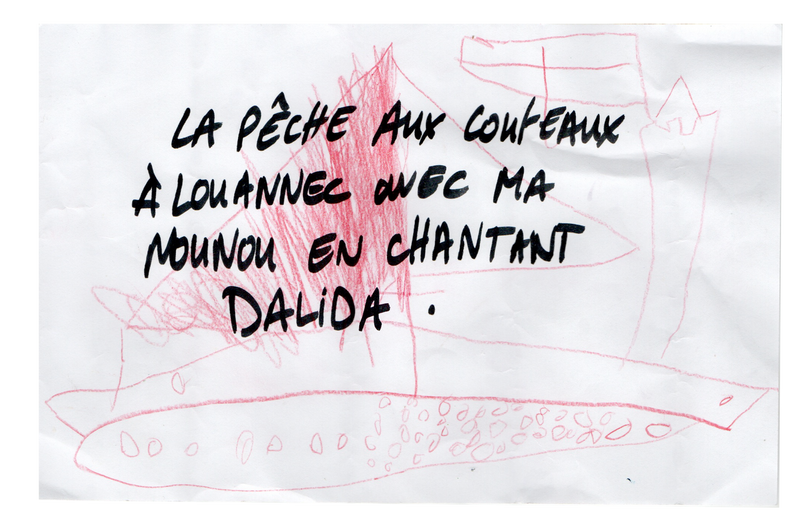 LA PÊCHE AUX COUTEAUX
À LOUANNEC AVEC MA
NOUNOU EN CHANTANT
DALIDA.